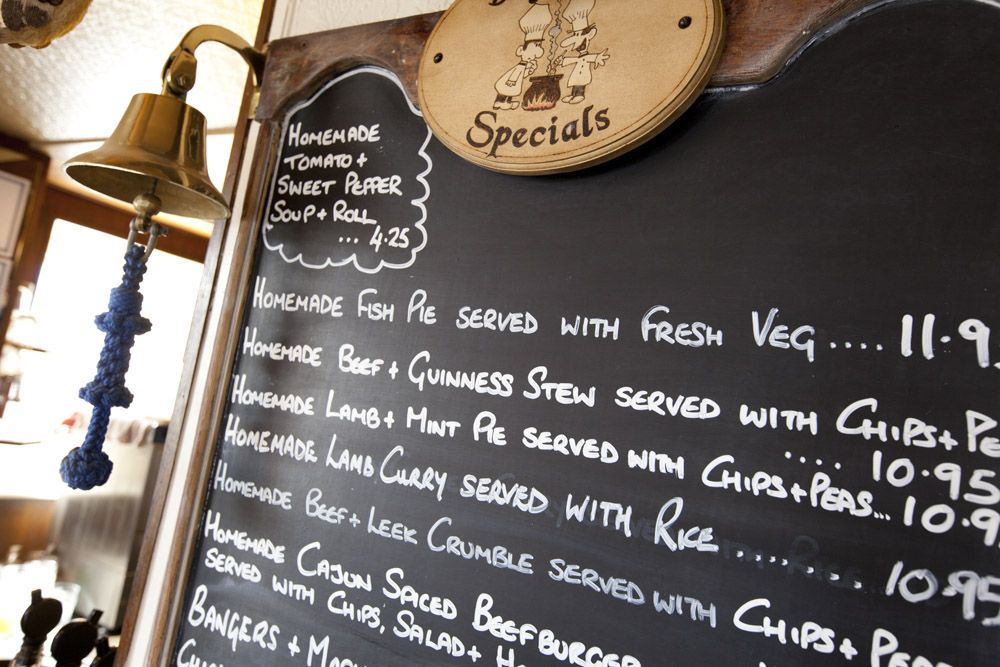 Specials
HOMEMADE
TOMATO +
SWEET PEPPER
SOUP + ROLL
... 4.25
HOMEMADE FISH PIE SERVED WITH FRESH VEG .... 11.9
HOMEMADE BEEF + GUINNESS STEW SERVED WITH CHIPS + PE
.... 10.95
HOMEMADE LAMB + MINT PIE SERVED WITH CHIPS + PEAS... 10.9
HOMEMADE LAMB CURRY SERVED WITH RICE ....... 10.95
HOMEMADE BEEF + LEEK CRUMBLE SERVED WITH CHIPS + PEA
HOMEMADE CAJUN SPICED BEEFBURGER
SERVED WITH CHIPS, SALAD +
BANGERS +